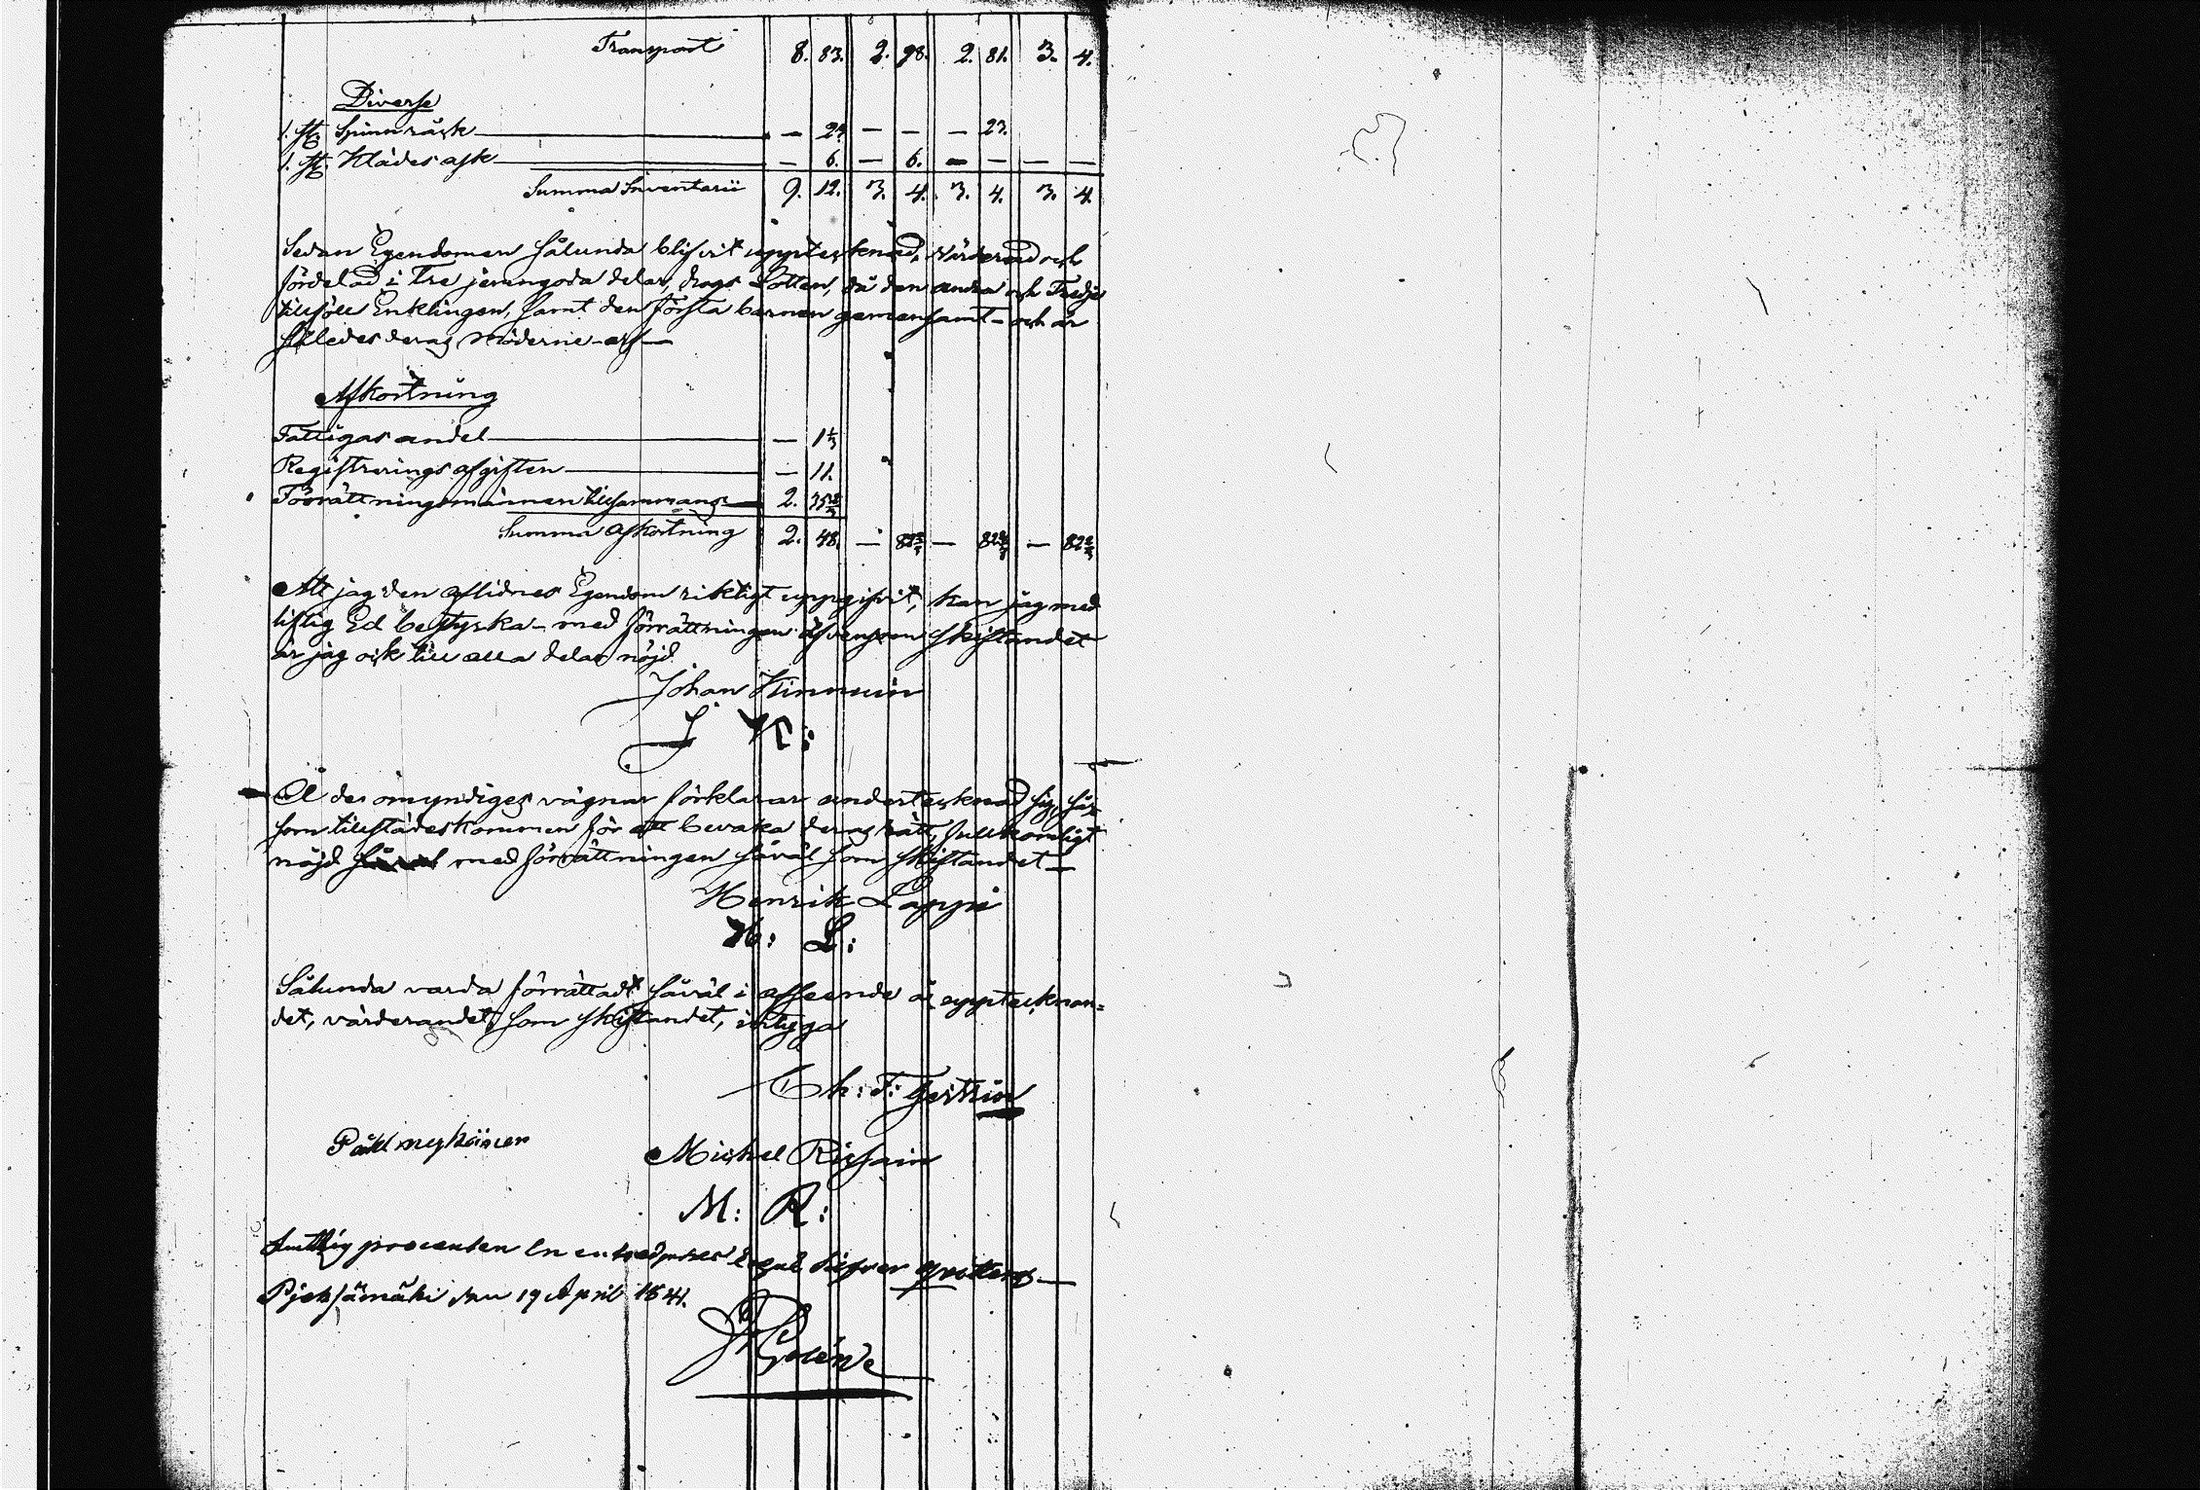 Transport 8. 83. 2. 98. 2. 81. 3. 4.
Diverse
1. st. Spinnråck — 23 — — — 23.
1. st. Klädes ask — 6. — 6. — — — —
Summa Inventarii 9. 12. 3. 4. 3. 4. 3. 4.
Sedan Egendomen sålunda blifvit uppteknad, värderad och
fördelad i Tre jemngoda delar, drogs Lotten, då den andra och Tredje
tillföll Enklingen, samt den första barnen gemensamt – och är
således deras möderne-arf —
Afkortning
Fattigas andel — 1 1/3
Registrerings afgiften — 11.
Förrättningsmännen tillsammans — 2. 35 2/3
Summa Afkortning 2. 48. — 82 2/3 — 82 2/3 — 82 2/3
Att jag den aflidnes Egendom riktigt uppgifvit, kan jag med
liflig Ed bestyrka – med förrättningen äfvensom skiftandet
är jag ock till alla delar nöjd
Johan Kinnuin
J K:
Å de omyndiges vägnar förklarar undertecknad sig, så
som tillstädeskommen för att bevaka deras rätt, fullkomligt
nöjd med förrättningen såväl som skiftandet —
Henrik Lappi
H: L:
Sålunda varda förrättadt såväl i afseende å upptecknan=
det, värderandet, som skiftandet, intyga
Ch: F:
Påhl nykäinen
Michel
M: R:
procenten en Silfver qvitteras —
Pjeksämäki den 19 April 1841.